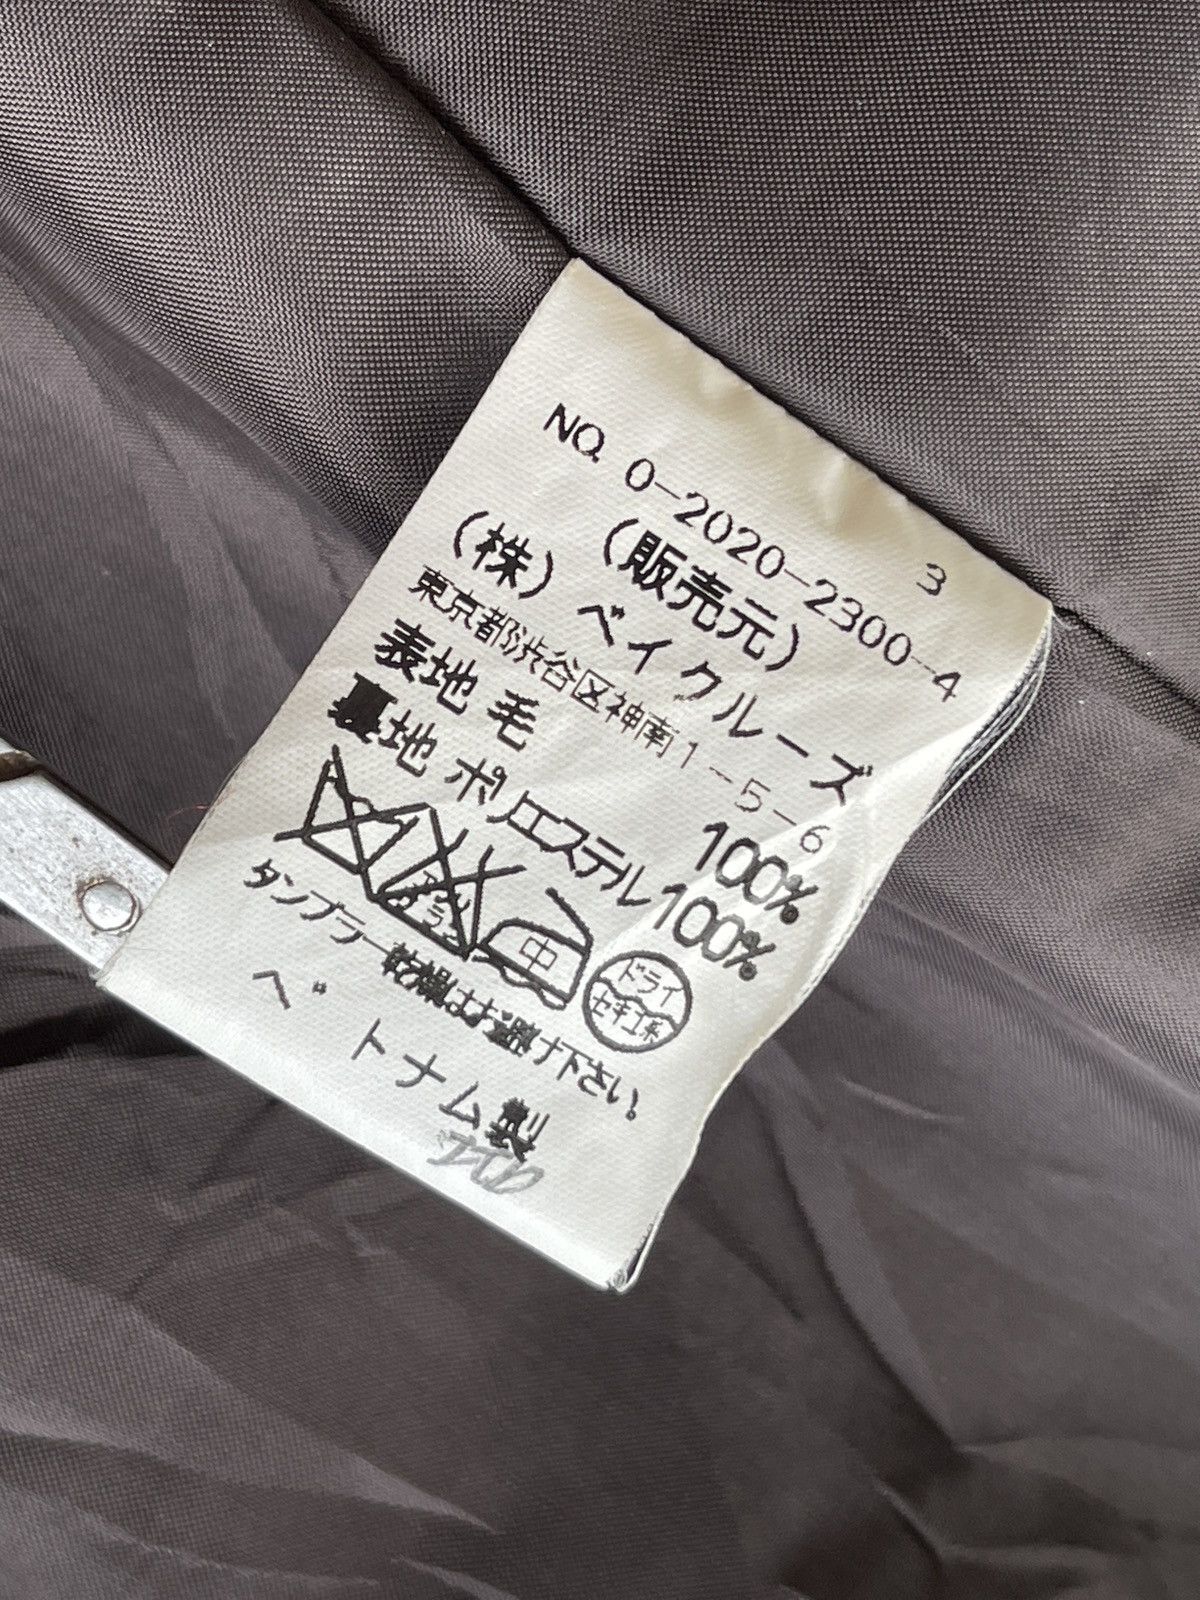 3
NO. 0-2020-2300-4
(販売元)
(株)ベイクルーズ
東京都渋谷区神南1-5-6
表地 毛 100%
裏地 ポリエステル 100%
中
ドライ
セキユ系
タンブラー乾燥はお避け下さい。
ベトナム製